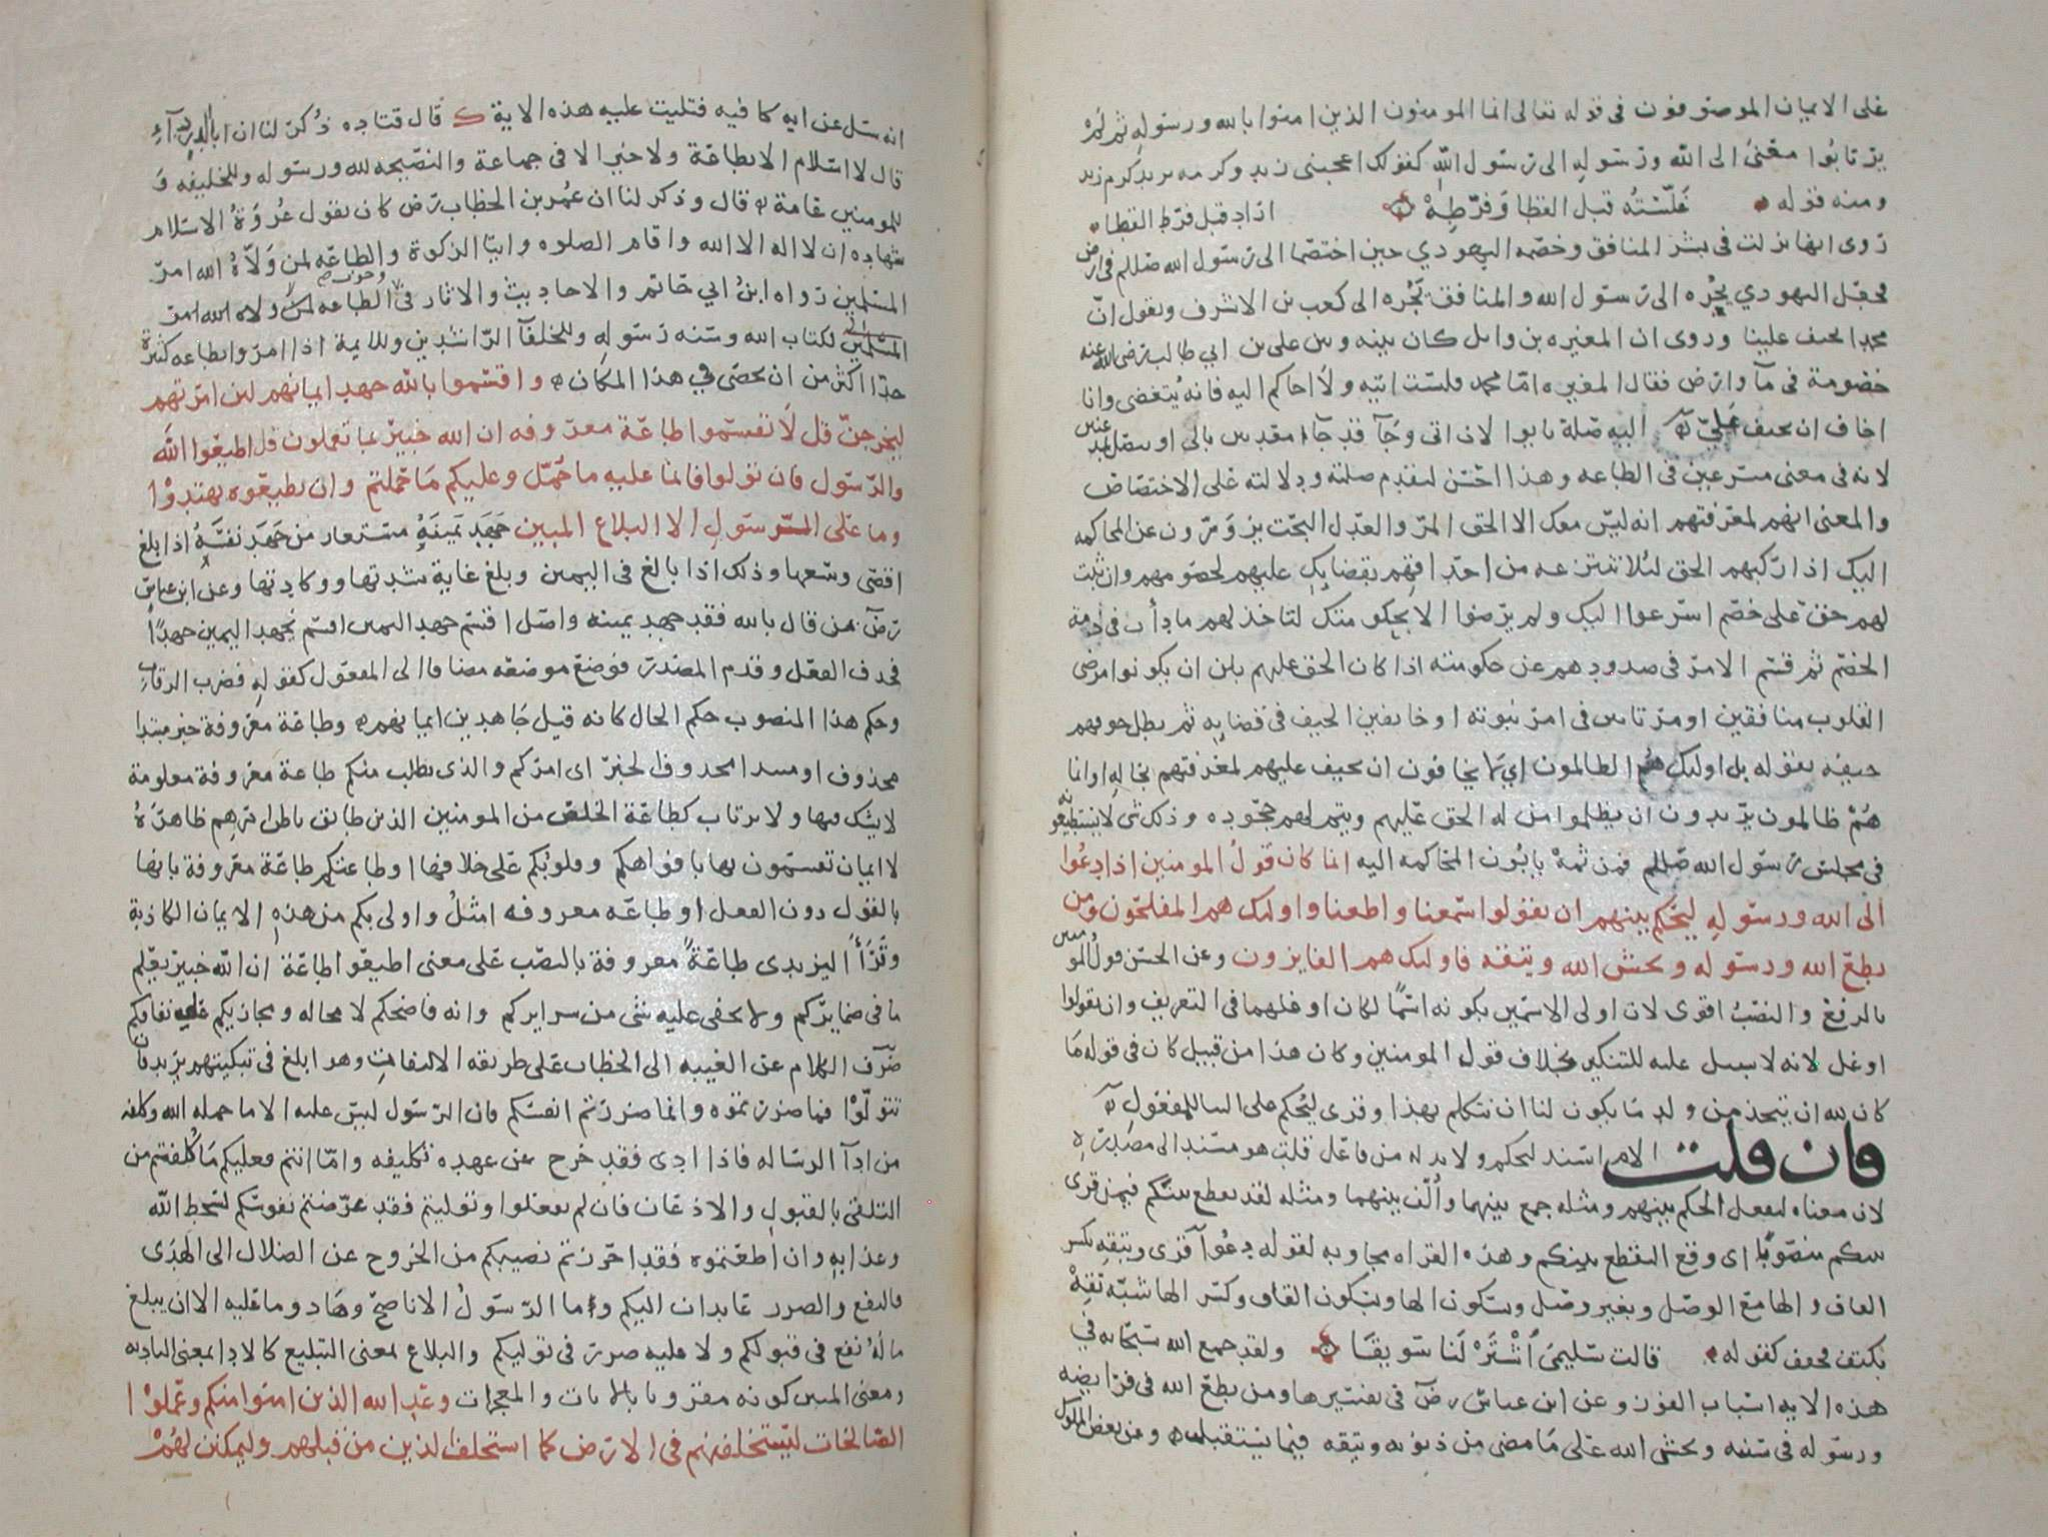 على الايمان الموصوفون في قوله تعالى انما المومنون الذين امنوا بالله ورسوله ثم لم
يرتابوا معنى الى الله ورسوله الى رسول الله كقولك اعجبني زيد وكرمه يريد كرم زيد
ومنه قوله غلسته قبل القطا وفرطه اراد قبل فرط القطا
روى انها نزلت في بشر المنافق وخصمه اليهودي حين اختصما الى رسول الله صللم في ارض
فجعل اليهودي يجره الى رسول الله والمنافق يجره الى كعب بن الاشرف ويقول ان
محمدا يحيف علينا وروى ان المغيره بن وايل كان بينه وبين علي بن ابي طالب رضى الله عنه
خصومة في مآ وارض فقال المغيره امّا محمد فلست اتيه ولا احاكم اليه فانه يبغضني وانا
اخاف ان يحيف عليّ اليه صلة ياتوا لان اتى وجآ قد جآا معديين بالى او يتصل بمذعنين
لانه في معنى مسرعين في الطاعه وهذا احسن لتقدم صلته ودلالته على الاختصاص
والمعنى انهم لمعرفتهم انه ليس معك الا الحق المر والعدل البحت يزورون عن المحاكمه
اليك اذا ركبهم الحق ليلا تنتزعه من احداقهم بقضايك عليهم لخصومهم وان ثبت
لهم حق على خصم اسرعوا اليك ولم يرضوا الا بحكومتك لتاخذ لهم ما ذاب في ذمة
الخصم ثم قسم الامر في صدودهم عن حكومته اذا كان الحق عليهم بين ان يكونوا مرضى
القلوب منافقين او مرتابين في امر نبوته او خايفين الحيف في قضايه ثم بطل خوفهم
حيفه بقوله بل اوليك هم الظالمون اي لا يخافون ان يحيف عليهم لمعرفتهم بحاله وانما
هم ظالمون يريدون ان يظلموا من له الحق عليهم ويتم لهم جحوده وذلك شي لا يستطيعونه
في مجلس رسول الله صللم فمن ثمه يابون المحاكمه اليه انما كان قول المومنين اذا دعوا
الى الله ورسوله ليحكم بينهم ان يقولوا سمعنا واطعنا واوليك هم المفلحون ومن
يطع الله ورسوله ويخش الله ويتقه فاوليك هم الفايزون وعن الحسن قول المومنين
بالرفع والنصب اقوى لان اولى الاسمين بكونه اسمًا لكان اوغلهما في التعريف وان يقولوا
اوغل لانه لا سبيل عليه للتنكير بخلاف قول المومنين وكان هذا من قبيل كان في قوله ما
كان لله ان يتخذ من ولد ما يكون لنا ان نتكلم بهذا وقرى ليحكم على البنا للمفعول
فان قلت الام اسند ليحكم ولا بد له من فاعل قلت هو مسند الى مصدره
لان معناه ليفعل الحكم بينهم ومثله جمع بينهما والّف بينهما ومثله لقد تقطع بينكم فيمن قرى
بينكم منصوبا اى وقع التقطع بينكم وهذه القراه مجاوبه لقوله دعوا قرى ويتقه بكسر
القاف والها مع الوصل وبغير وصل وبسكون الها وبسكون القاف وكسر الها شبه تقه
بكتف فخفف كقوله قالت سليمى اشتر لنا سويقا ولقد جمع الله سبحانه في
هذه الايه اسباب الفوز وعن ابن عباس رض في تفسيرها ومن يطع الله في فرايضه
ورسوله في سننه ويخش الله على ما مضى من ذنوبه ويتقه فيما يستقبله وعن بعض الملوك
انه سئل عن ايه كافيه فتليت عليه هذه الاية ك قال قتاده ذكر لنا ان ابا الدردآء
قال لا اسلام الا بطاعة ولا خير الا في جماعة والنصيحه لله ورسوله وللخليفه و
للمومنين عامة قال وذكر لنا ان عمر بن الخطاب رض كان يقول عروة الاسلام
شهاده ان لا اله الا الله واقام الصلوه وايتا الزكوة والطاعه لمن ولّاه الله امر
المسلمين رواه ابن ابي حاتم والاحاديث والاثار في وجوب الطاعه
لكتاب الله وسنه رسوله وللخلفآ الراشدين وللايمة اذا امروا بطاعه كثيرة
جدّا اكثر من ان يحصى في هذا المكان واقسموا بالله جهد ايمانهم لين امرتهم
ليخرجن قل لا تقسموا طاعة معروفه ان الله خبير بما تعملون قل اطيعوا الله
والرسول فان تولوا فانما عليه ما حمل وعليكم ما حملتم وان تطيعوه تهتدوا
وما على الرسول الا البلاغ المبين جهد يمينه مستعار من جهد نفسه اذا بلغ
اقصى وسعها وذلك اذا بالغ في اليمين وبلغ غاية شدتها ووكادتها وعن ابن عباس
رض من قال بالله فقد جهد يمينه واصل اقسم جهد اليمين اقسم يجهد اليمين جهدًا
فحذف الفعل وقدم المصدر فوضع موضعه مضافا الى المفعول كقوله فضرب الرقاب
وحكم هذا المنصوب حكم الحال كانه قيل جاهدين ايمانهم وطاعة معروفة خبر مبتدا
محذوف او مبتدا محذوف الخبر اى امركم والذى يطلب منكم طاعة معروفة معلومة
لا يشك فيها ولا يرتاب كطاعة الخلص من المومنين الذين طابق باطن امرهم ظاهرة
لا ايمان تقسمون بها بافواهكم وقلوبكم على خلافها او طاعتكم طاعة معروفة بانها
بالقول دون الفعل او طاعه معروفه امثل واولى بكم من هذه الايمان الكاذبة
وقرأ اليزيدى طاعةً معروفة بالنصب على معنى اطيعوا طاعة ان الله خبير يعلم
ما في ضمايركم ولا يخفى عليه شى من سرايركم وانه فاضحكم لا محاله ومجازيكم على نفاقكم
صرف الكلام عن الغيبه الى الخطاب على طريقه الالتفات وهو ابلغ في تبكيتهم يريد فان
تتولّوا فما ضررتموه وانما ضررتم انفسكم فان الرسول ليس عليه الا ما حمله الله وكلفه
من ادآ الرساله فاذا ادى فقد خرج عن عهده تكليفه وامّا انتم فعليكم ما كلفتم من
التلقي بالقبول والاذعان فان لم تفعلوا وتوليتم فقد عرضتم نفوسكم لسخط الله
وعذابه وان اطعتموه فقد احرزتم نصيبكم من الخروج عن الضلال الى الهدى
فالنفع والضرر عايدان اليكم وما الرسول الا ناصح وهاد وما عليه الا ان يبلغ
ما له نفع في قبولكم ولا عليه ضرر في توليكم والبلاغ بمعنى التبليغ كالادا بمعنى التاديه
ومعنى المبين كونه مقرونا بالايات والمعجزات وعد الله الذين امنوا منكم وعملوا
الصالحات ليستخلفنهم في الارض كما استخلف الذين من قبلهم وليمكنن لهم